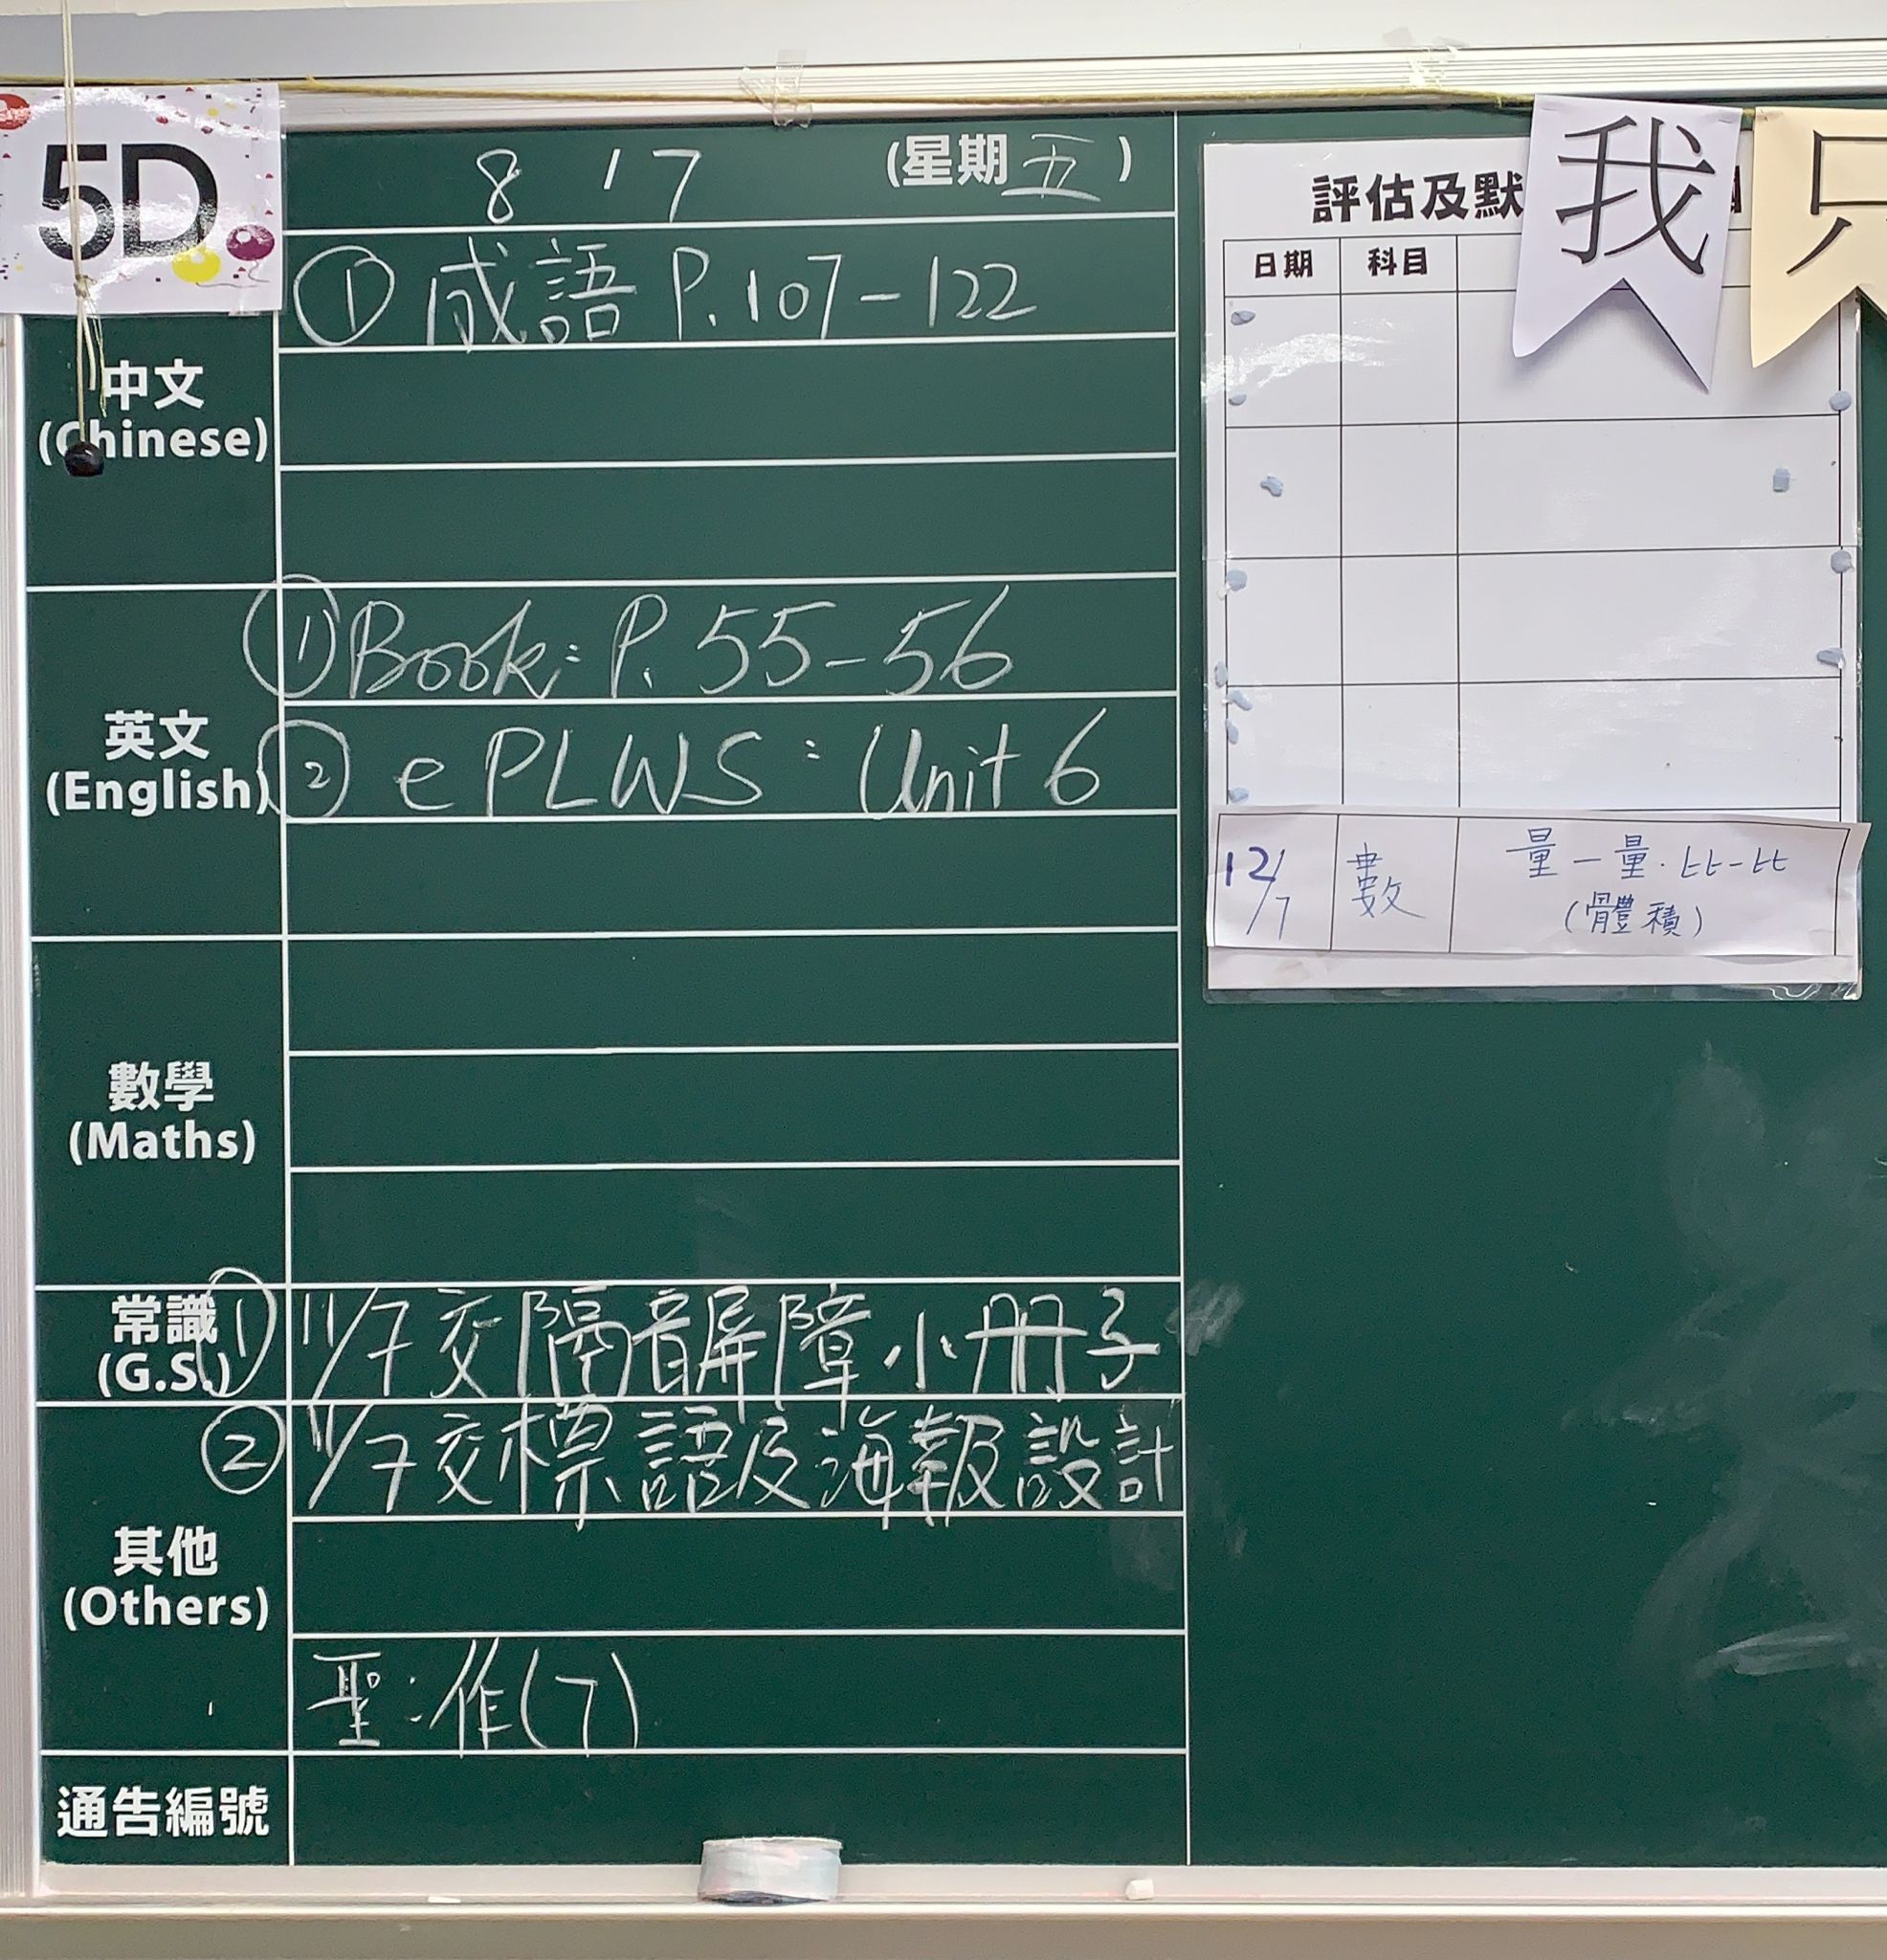 5D
8 / 7 (星期五)
中文
(Chinese)
① 成語 P.107-122
英文
(English)
① Book: P. 55-56
② ePLWS: Unit 6
數學
(Maths)
常識
(G.S.)
① 11/7交隔音屏障小冊子
② 11/7交標語及海報設計
其他
(Others)
聖:作(7)
通告編號
評估及默
我
只
日期 科目
12/7 數 量一量.比一比
(體積)